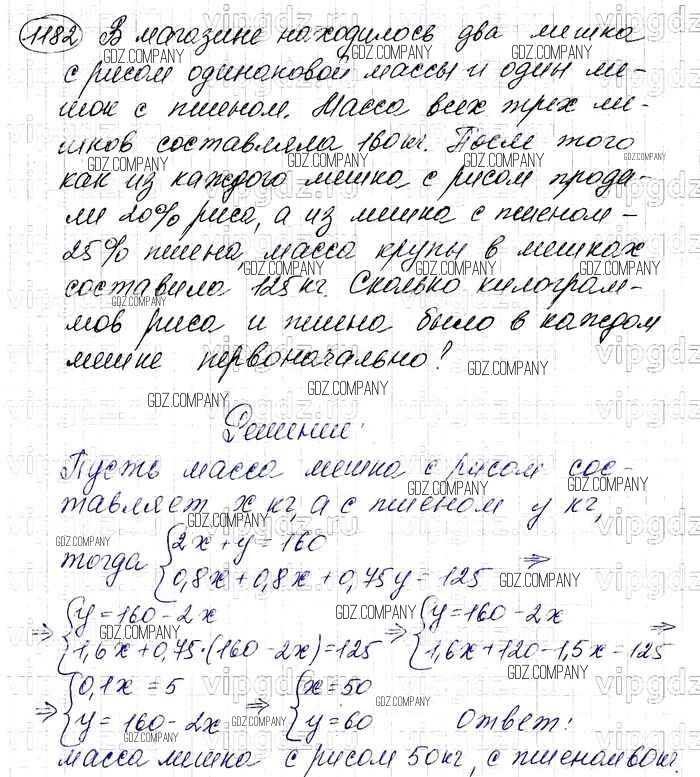 1182 В магазине находилось два мешка
с рисом одинаковой массы и один ме-
шок с пшеном. Масса всех трех ме-
шков составляла 160 кг. После того
как из каждого мешка с рисом прода-
ли 20% риса, а из мешка с пшеном -
25% пшена, масса крупы в мешках
составила 125 кг. Сколько килограм-
мов риса и пшена было в каждом
мешке первоначально?
Решение:
Пусть масса мешка с рисом сос-
тавляет x кг, а с пшеном y кг,
тогда { 2x + y = 160
0,8x + 0,8x + 0,75y = 125 ⇒
⇒ { y = 160 - 2x
1,6x + 0,75·(160 - 2x) = 125
⇒ { y = 160 - 2x
1,6x + 120 - 1,5x = 125 ⇒
⇒ { 0,1x = 5
y = 160 - 2x
⇒ { x = 50
y = 60
Ответ:
масса мешка с рисом 50 кг, с пшеном 60 кг.
GDZ.COMPANY
vipgdz.ru